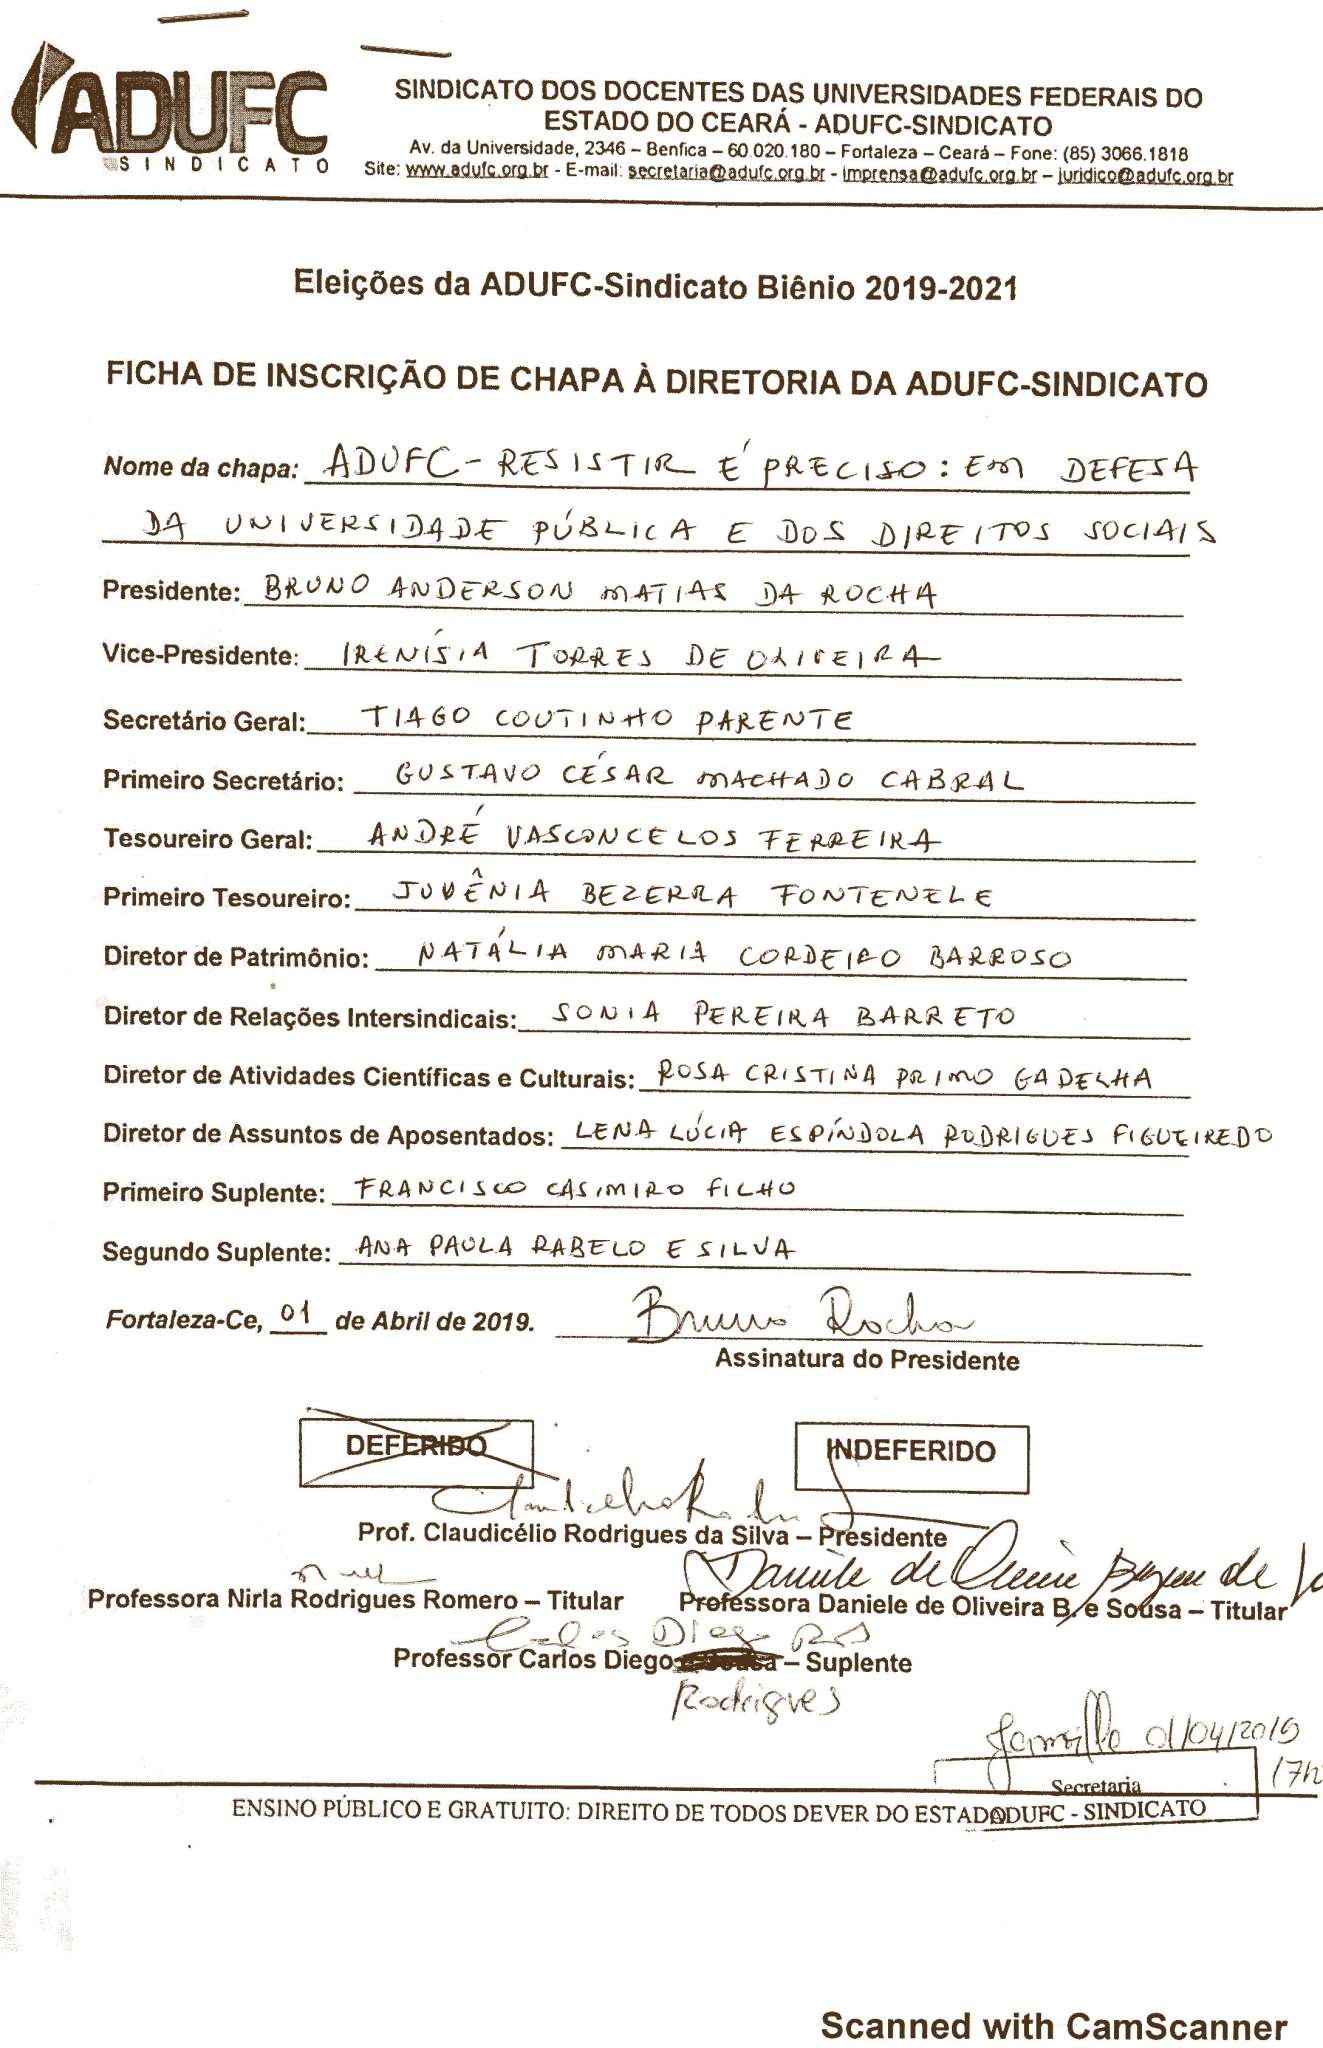 ADUFC
SINDICATO
SINDICATO DOS DOCENTES DAS UNIVERSIDADES FEDERAIS DO
ESTADO DO CEARÁ - ADUFC-SINDICATO
Av. da Universidade, 2346 – Benfica – 60.020.180 – Fortaleza – Ceará – Fone: (85) 3066.1818
Site: www.adufc.org.br - E-mail: secretaria@adufc.org.br - imprensa@adufc.org.br – juridico@adufc.org.br
Eleições da ADUFC-Sindicato Biênio 2019-2021
FICHA DE INSCRIÇÃO DE CHAPA À DIRETORIA DA ADUFC-SINDICATO
Nome da chapa: ADUFC - RESISTIR É PRECISO: EM DEFESA
DA UNIVERSIDADE PÚBLICA E DOS DIREITOS SOCIAIS
Presidente: BRUNO ANDERSON MATIAS DA ROCHA
Vice-Presidente: IRENÍSIA TORRES DE OLIVEIRA
Secretário Geral: TIAGO COUTINHO PARENTE
Primeiro Secretário: GUSTAVO CÉSAR MACHADO CABRAL
Tesoureiro Geral: ANDRÉ VASCONCELOS FERREIRA
Primeiro Tesoureiro: JUVÊNIA BEZERRA FONTENELE
Diretor de Patrimônio: NATÁLIA MARIA CORDEIRO BARROSO
Diretor de Relações Intersindicais: SONIA PEREIRA BARRETO
Diretor de Atividades Científicas e Culturais: ROSA CRISTINA PRIMO GADELHA
Diretor de Assuntos de Aposentados: LENA LÚCIA ESPÍNDOLA RODRIGUES FIGUEIREDO
Primeiro Suplente: FRANCISCO CASIMIRO FILHO
Segundo Suplente: ANA PAULA RABELO E SILVA
Fortaleza-Ce, 01 de Abril de 2019. Bruno Rocha
Assinatura do Presidente
DEFERIDO INDEFERIDO
Prof. Claudicélio Rodrigues da Silva – Presidente
Daniele de Oliveira
Professora Nirla Rodrigues Romero – Titular Professora Daniele de Oliveira B. e Sousa – Titular
Carlos Diego
Professor Carlos Diego – Suplente
Rodrigues
01/04/2019
17h
Secretaria
ENSINO PÚBLICO E GRATUITO: DIREITO DE TODOS DEVER DO ESTADO ADUFC - SINDICATO
Scanned with CamScanner